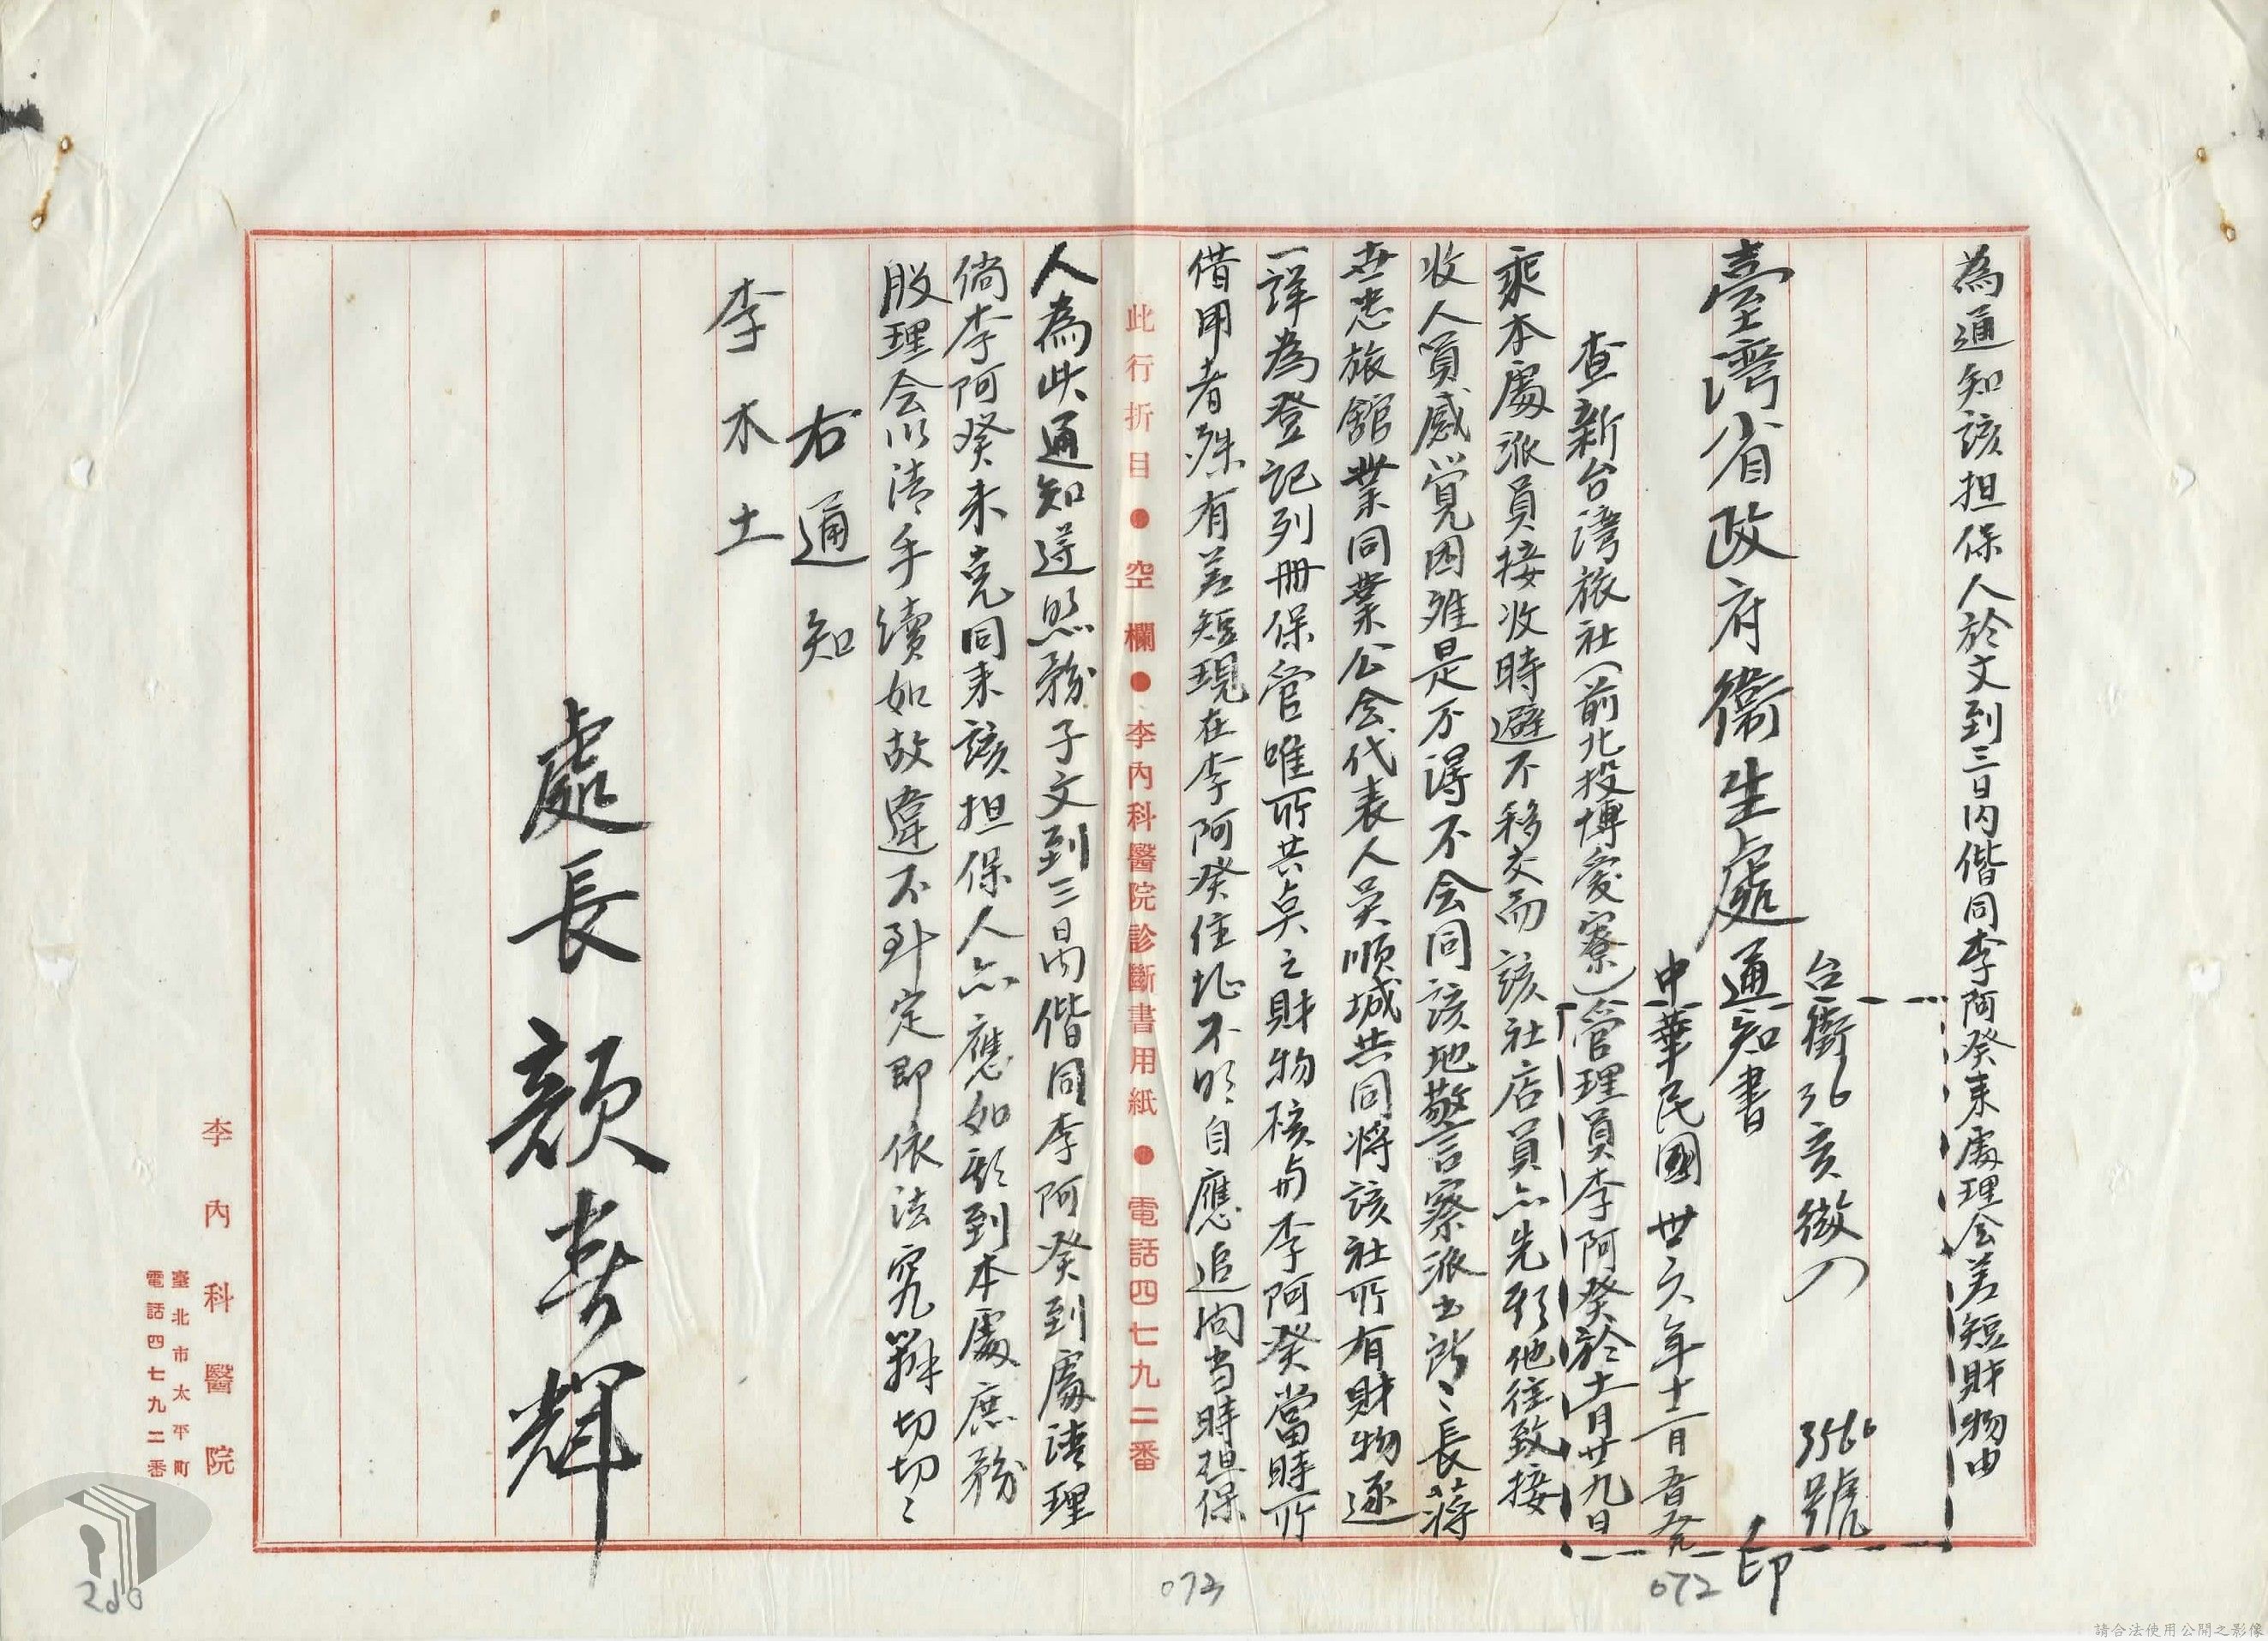 為通知該担保人於文到三日內偕同李阿癸来處理会差短財物由
台衛36亥徵(入) 3566號
臺灣省政府衛生處通知書
中華民國卅六年十二月 發 印
查新台湾旅社(前北投博愛寮)管理員李阿癸於十一月廿九日
乘本處派員接收時避不移交而該社店員亦先形他往致接
收人員感覚困难是不得不会同該地警察派出所ミ長蒋
世忠旅館業同業公会代表人吳順城共同將該社所有財物逐
一詳為登記列冊保管唯所共点之財物核与李阿癸當時所
借用者殊有差短現在李阿癸住址不明自應追向当時担保
此行折目●空欄●李內科醫院診斷書用紙●電話四七九二番
人為此通知遵照務予文到三日內偕同李阿癸到處清理
倘李阿癸未克同来該担保人亦應如期到本處庶務
股理会以清手續如故違不到定即依法究辦切切ミ
右通知
李木土
處長顏春輝
李內科醫院
臺北市太平町
電話四七九二番
072
073
請合法使用公開之影像